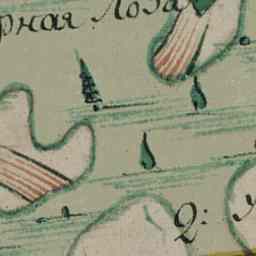 рная Лоза
2: